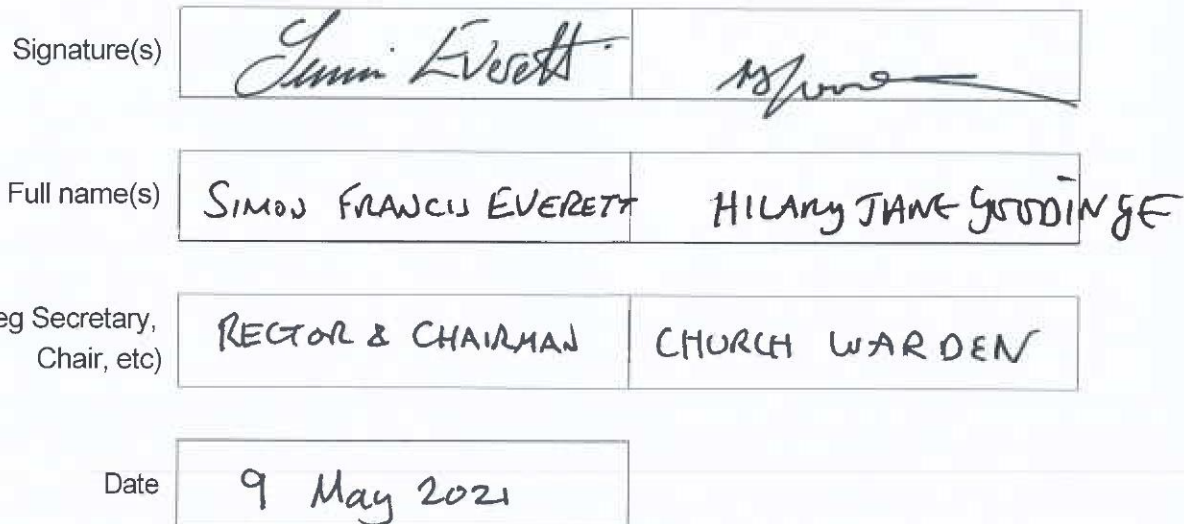 Signature(s) Simon Everett
Full name(s) SIMON FRANCIS EVERETT HILARY JANE GOODINGE
eg Secretary, RECTOR & CHAIRMAN CHURCH WARDEN
Chair, etc)
Date 9 May 2021